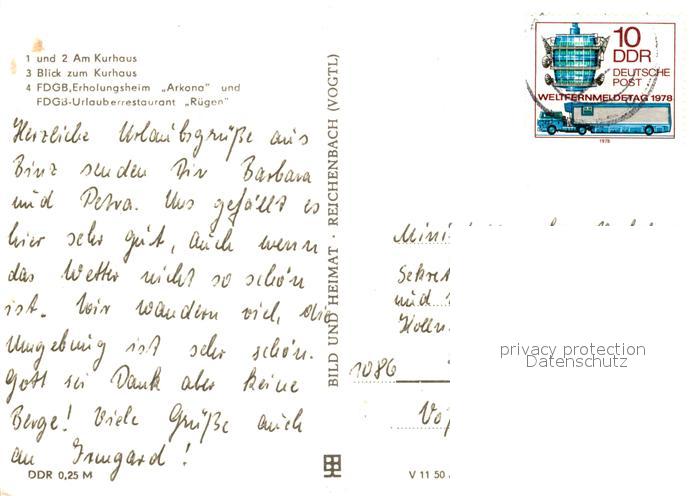 1 und 2 Am Kurhaus
3 Blick zum Kurhaus
4 FDGB,Erholungsheim „Arkona" und
FDGB-Urlauberrestaurant „Rügen"
Herzliche Urlaubsgrüße aus
Binz senden Dir Barbara
und Petra. Uns gefällt es
hier sehr gut, auch wenn
das Wetter nicht so schön
ist. Wir wandern viel, die
Umgebung ist sehr schön.
Gott sei Dank aber keine
Berge! Viele Grüße auch
an Irmgard!
DDR 0,25 M
BILD UND HEIMAT · REICHENBACH (VOGTL)
10
DDR
DEUTSCHE
POST
WELTFERNMELDETAG 1978
1978
Mini
Sekret
und
1086
privacy protection
Datenschutz
V 11 50